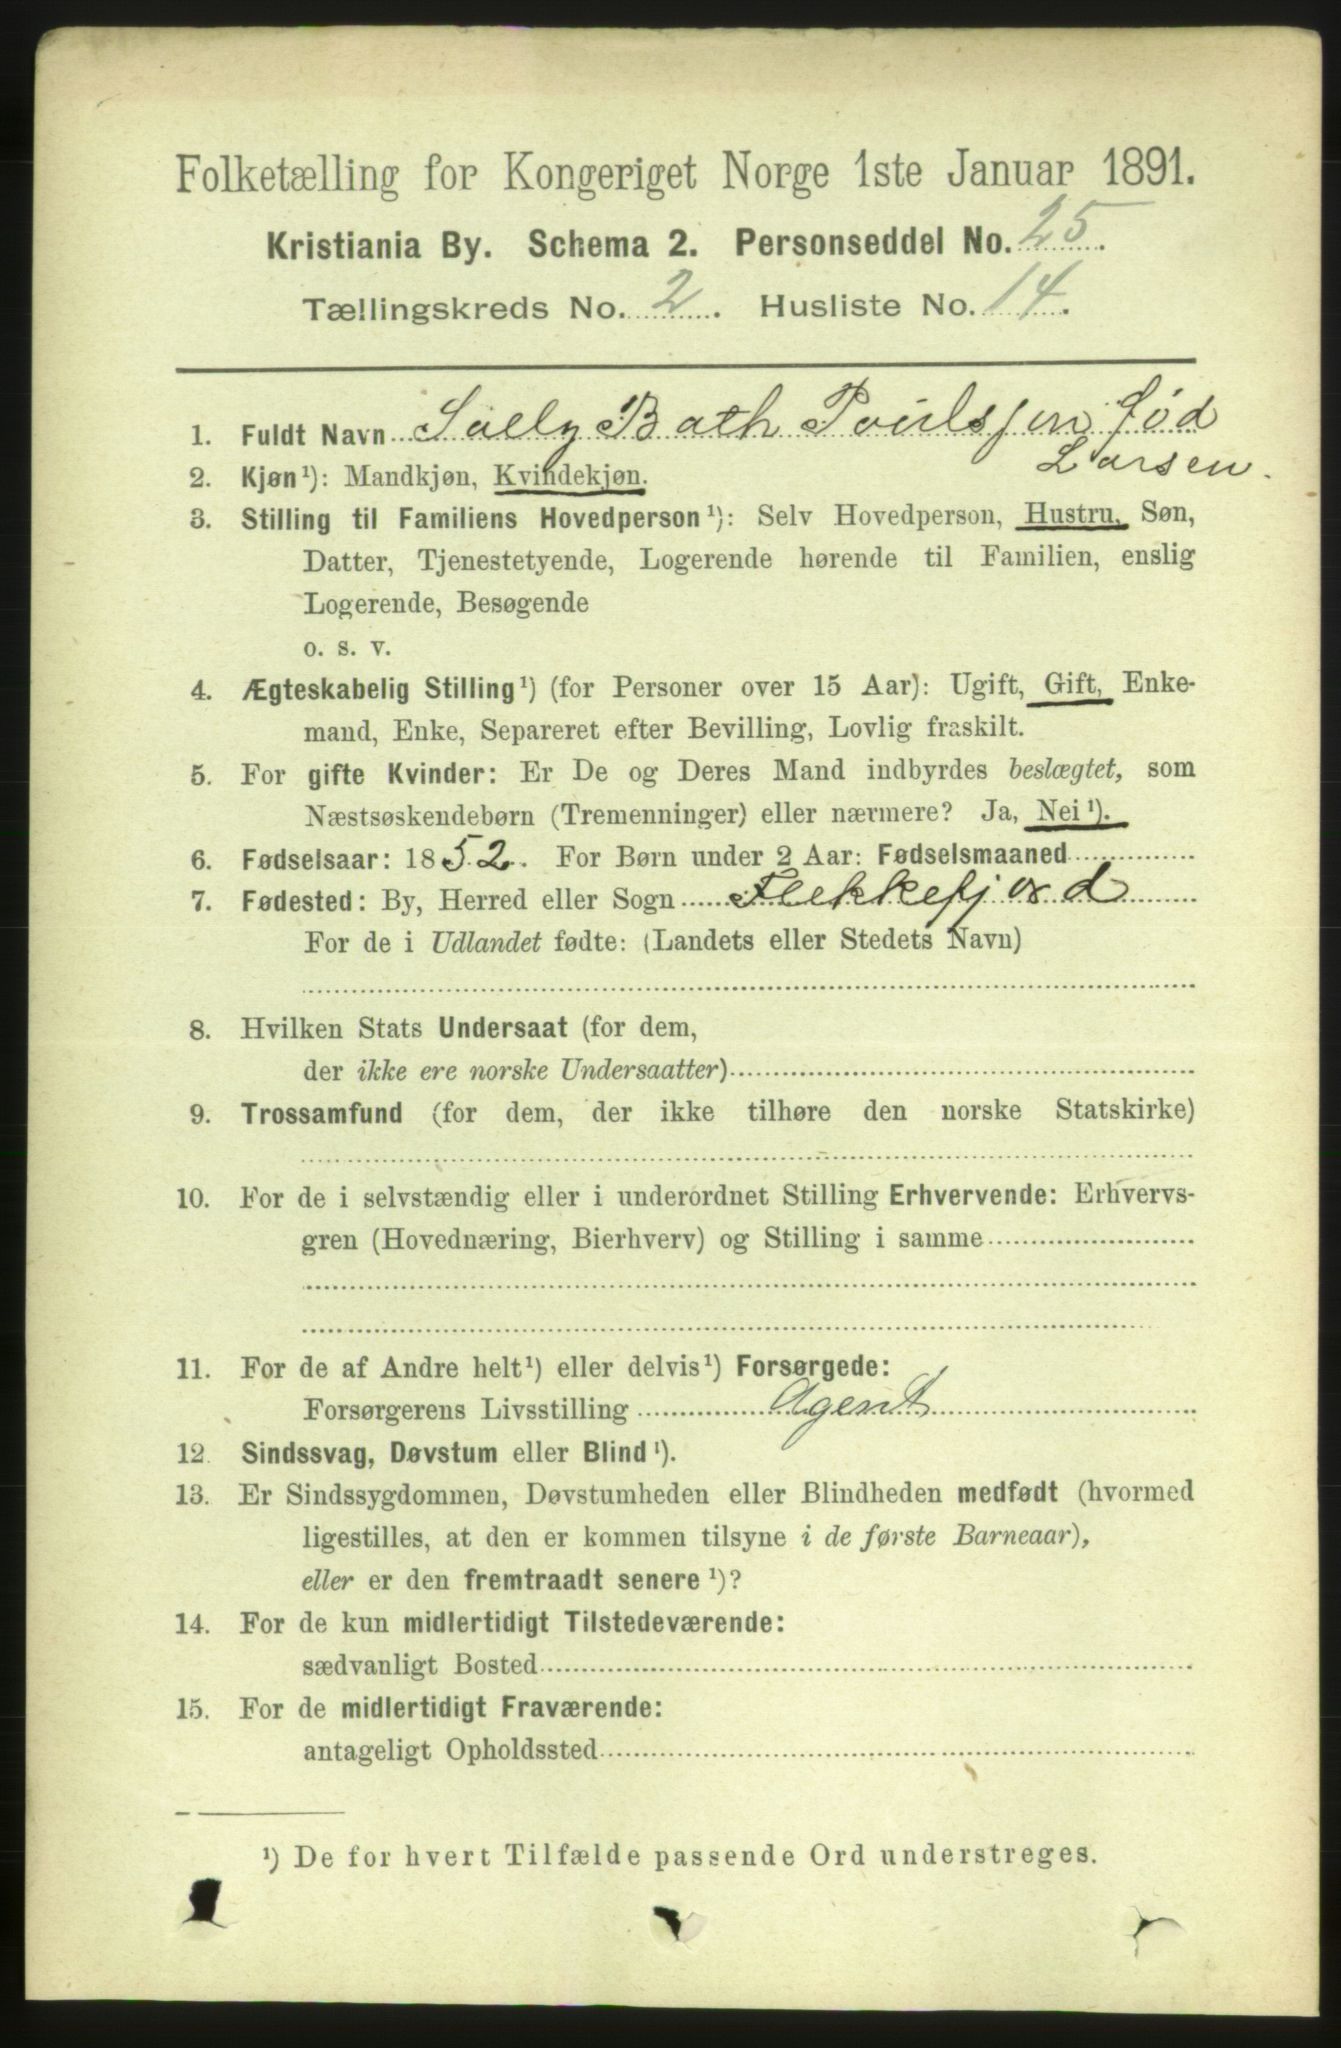 Folketælling for Kongeriget Norge 1ste Januar 1891.
Kristiania By. Schema 2. Personseddel No. 25.
Tællingskreds No. 2. Husliste No. 14.
1. Fuldt Navn Sally Bath Poulssen fød
Larsen.
2. Kjøn¹): Mandkjøn, Kvindekjøn.
3. Stilling til Familiens Hovedperson¹): Selv Hovedperson, Hustru, Søn,
Datter, Tjenestetyende, Logerende hørende til Familien, enslig
Logerende, Besøgende
o. s. v.
4. Ægteskabelig Stilling¹) (for Personer over 15 Aar): Ugift, Gift, Enke-
mand, Enke, Separeret efter Bevilling, Lovlig fraskilt.
5. For gifte Kvinder: Er De og Deres Mand indbyrdes beslægtet, som
Næstsøskendebørn (Tremenninger) eller nærmere? Ja, Nei¹).
6. Fødselsaar: 1852. For Børn under 2 Aar: Fødselsmaaned
7. Fødested: By, Herred eller Sogn Flekkefjord
For de i Udlandet fødte: (Landets eller Stedets Navn)
8. Hvilken Stats Undersaat (for dem,
der ikke ere norske Undersaatter)
9. Trossamfund (for dem, der ikke tilhøre den norske Statskirke)
10. For de i selvstændig eller i underordnet Stilling Erhvervende: Erhvervs-
gren (Hovednæring, Bierhverv) og Stilling i samme
11. For de af Andre helt¹) eller delvis¹) Forsørgede:
Forsørgerens Livsstilling Agent
12. Sindssvag, Døvstum eller Blind¹).
13. Er Sindssygdommen, Døvstumheden eller Blindheden medfødt (hvormed
ligestilles, at den er kommen tilsyne i de første Barneaar),
eller er den fremtraadt senere¹)?
14. For de kun midlertidigt Tilstedeværende:
sædvanligt Bosted
15. For de midlertidigt Fraværende:
antageligt Opholdssted
¹) De for hvert Tilfælde passende Ord understreges.